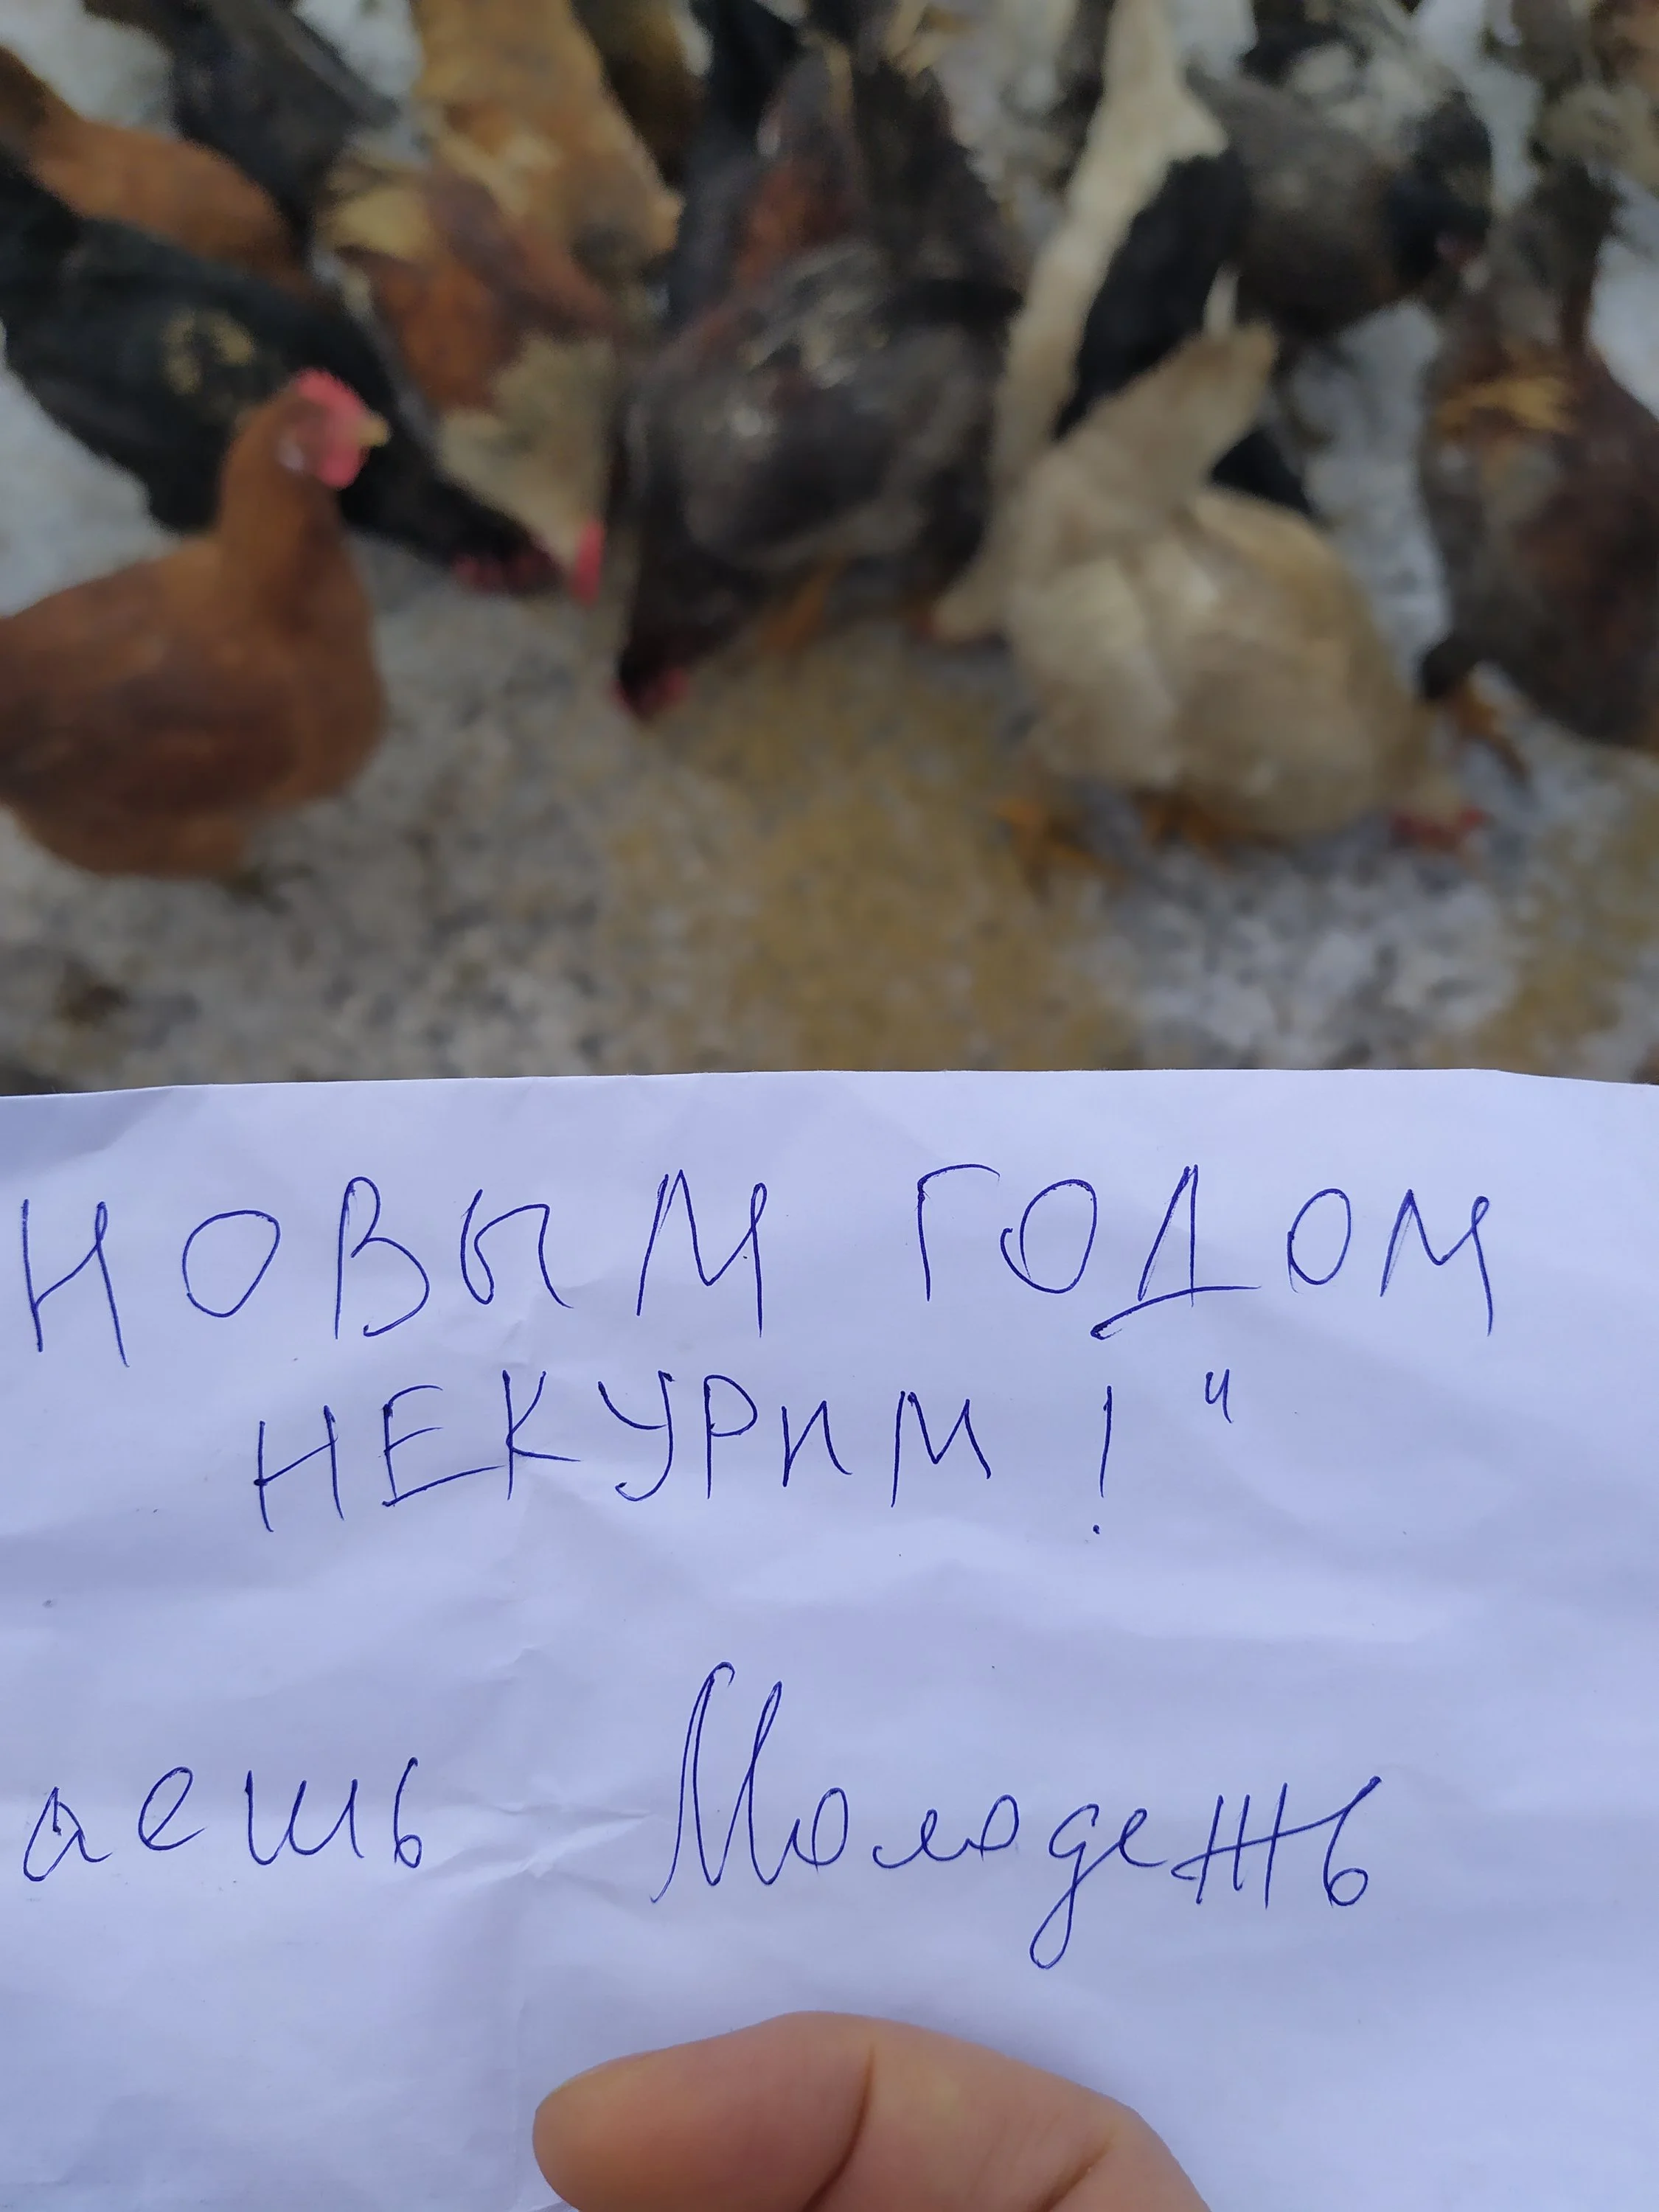 НОВЫМ ГОДОМ
НЕКУРИМ!"
аешь Молодежь